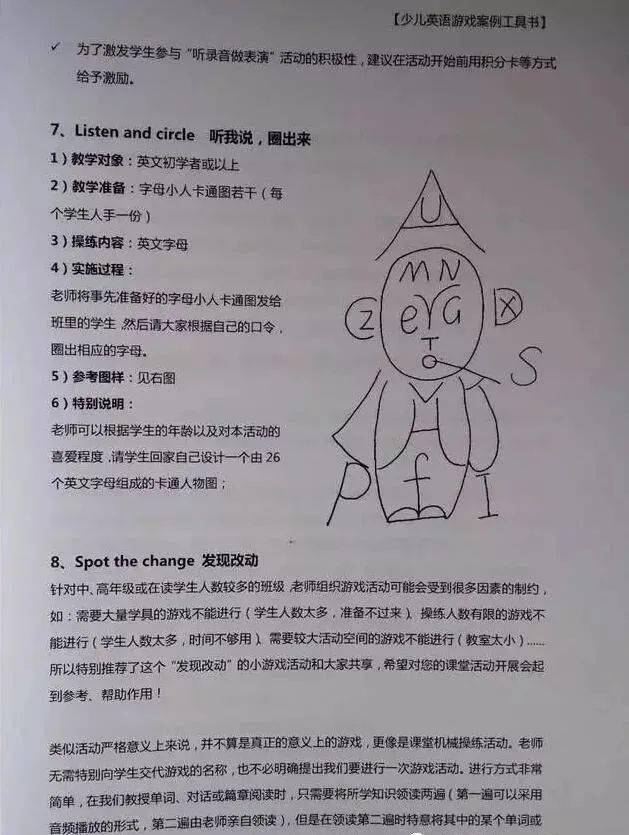 【少儿英语游戏案例工具书】
✓ 为了激发学生参与“听录音做表演”活动的积极性，建议在活动开始前用积分卡等方式
给予激励。
7、Listen and circle 听我说，圈出来
1）教学对象：英文初学者或以上
2）教学准备：字母小人卡通图若干（每
个学生人手一份）
3）操练内容：英文字母
4）实施过程：
老师将事先准备好的字母小人卡通图发给
班里的学生，然后请大家根据自己的口令，
圈出相应的字母。
5）参考图样：见右图
6）特别说明：
老师可以根据学生的年龄以及对本活动的
喜爱程度，请学生回家自己设计一个由 26
个英文字母组成的卡通人物图；
U
M N
Z e r a X
T
S
P f I
8、Spot the change 发现改动
针对中、高年级或在读学生人数较多的班级，老师组织游戏活动可能会受到很多因素的制约，
如：需要大量学具的游戏不能进行（学生人数太多，准备不过来）、操练人数有限的游戏不
能进行（学生人数太多，时间不够用）、需要较大活动空间的游戏不能进行（教室太小）......
所以特别推荐了这个“发现改动”的小游戏活动和大家共享，希望对您的课堂活动开展会起
到参考、帮助作用！
类似活动严格意义上来说，并不算是真正的意义上的游戏，更像是课堂机械操练活动。老师
无需特别向学生交代游戏的名称，也不必明确提出我们要进行一次游戏活动。进行方式非常
简单，在我们教授单词、对话或篇章阅读时，只需要将所学知识领读两遍（第一遍可以采用
音频播放的形式，第二遍由老师亲自领读），但是在领读第二遍时特意将其中的某个单词或